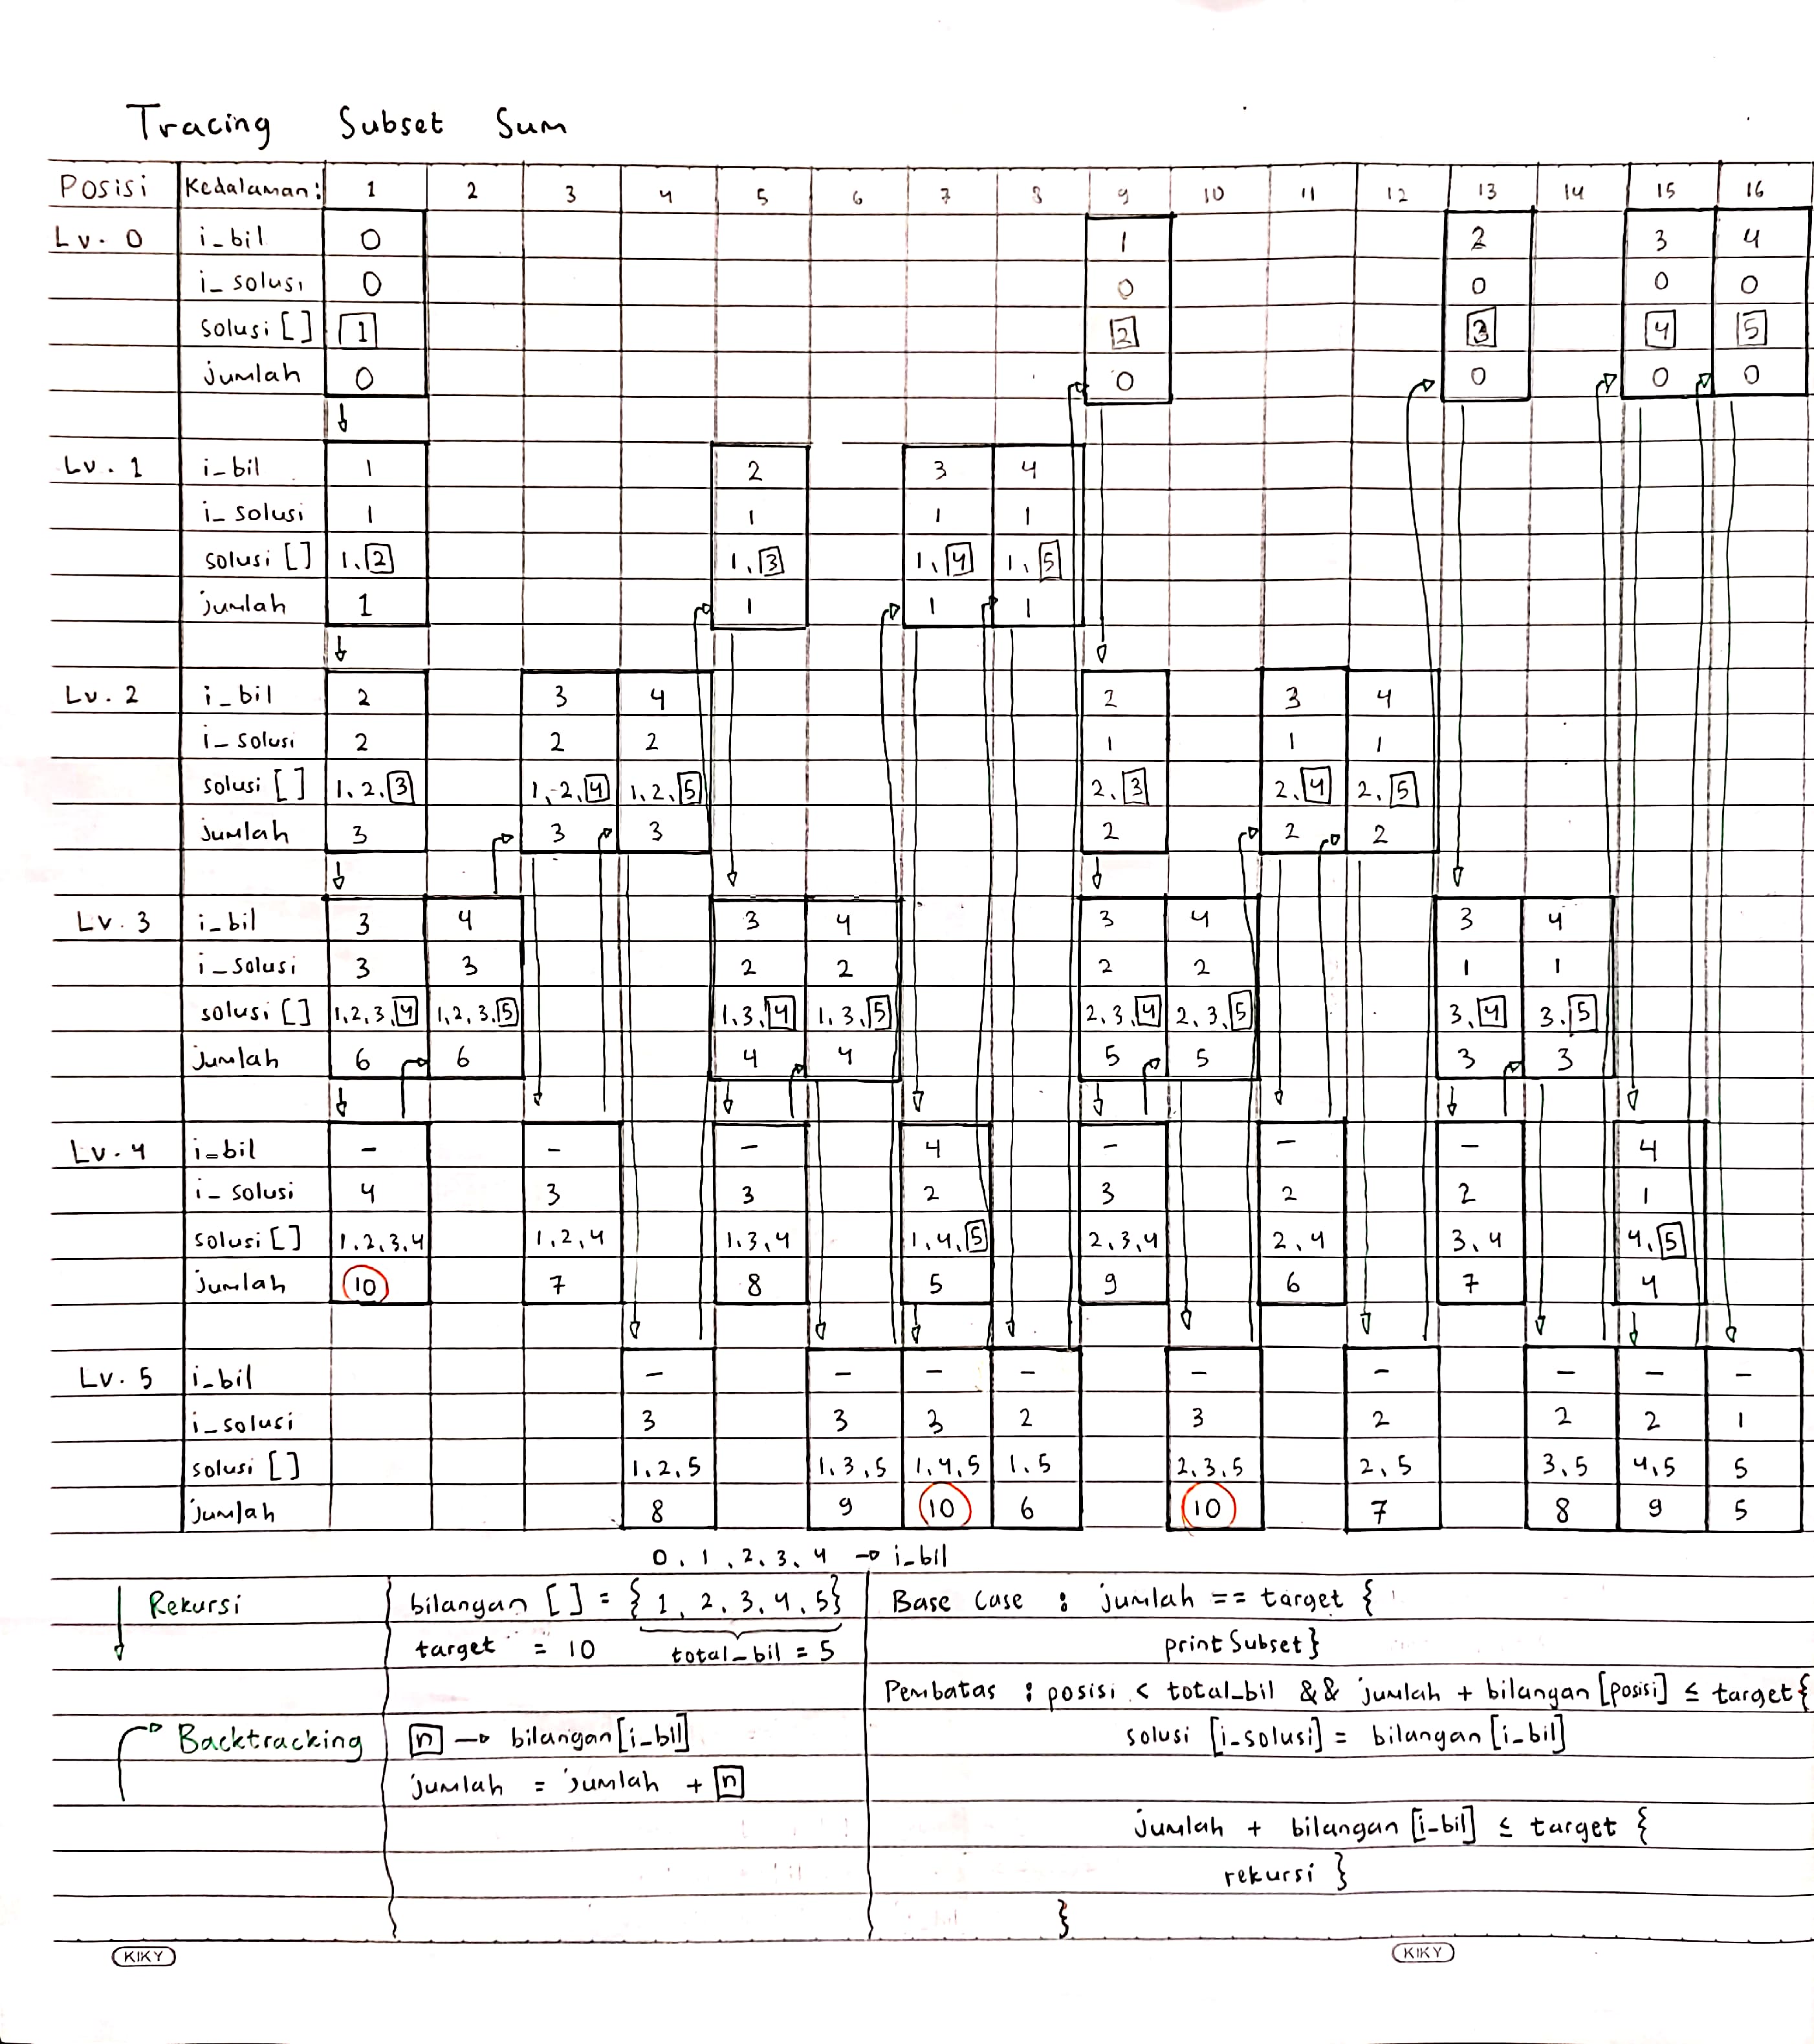 Tracing Subset Sum
Posisi Kedalaman: 1 2 3 4 5 6 7 8 9 10 11 12 13 14 15 16
Lv. 0 i_bil 0 1 2 3 4
i_solusi 0 0 0 0 0
solusi [] 1 2 3 4 5
jumlah 0 0 0 0 0
Lv. 1 i_bil 1 2 3 4
i_solusi 1 1 1 1
solusi [] 1,2 1,3 1,4 1,5
jumlah 1 1 1 1
Lv. 2 i_bil 2 3 4 2 3 4
i_solusi 2 2 2 1 1 1
solusi [] 1,2,3 1,2,4 1,2,5 2,3 2,4 2,5
jumlah 3 3 3 2 2 2
Lv. 3 i_bil 3 4 3 4 3 4 3 4
i_solusi 3 3 2 2 2 2 1 1
solusi [] 1,2,3,4 1,2,3,5 1,3,4 1,3,5 2,3,4 2,3,5 3,4 3,5
jumlah 6 6 4 4 5 5 3 3
Lv. 4 i_bil - - - 4 - - - 4
i_solusi 4 3 3 2 3 2 2 1
solusi [] 1,2,3,4 1,2,4 1,3,4 1,4,5 2,3,4 2,4 3,4 4,5
jumlah 10 7 8 5 9 6 7 4
Lv. 5 i_bil - - - - - - - - -
i_solusi 3 3 3 2 3 2 2 2 1
solusi [] 1,2,5 1,3,5 1,4,5 1,5 2,3,5 2,5 3,5 4,5 5
jumlah 8 9 10 6 10 7 8 9 5
0, 1, 2, 3, 4 → i_bil
Rekursi
Backtracking
bilangan [] = { 1, 2, 3, 4, 5}
target = 10 total_bil = 5
n → bilangan [i_bil]
jumlah = jumlah + n
Base Case : jumlah == target {
print Subset}
Pembatas : posisi < total_bil && jumlah + bilangan [posisi] ≤ target {
solusi [i_solusi] = bilangan [i_bil]
jumlah + bilangan [i_bil] ≤ target {
rekursi }
}
KIKY KIKY